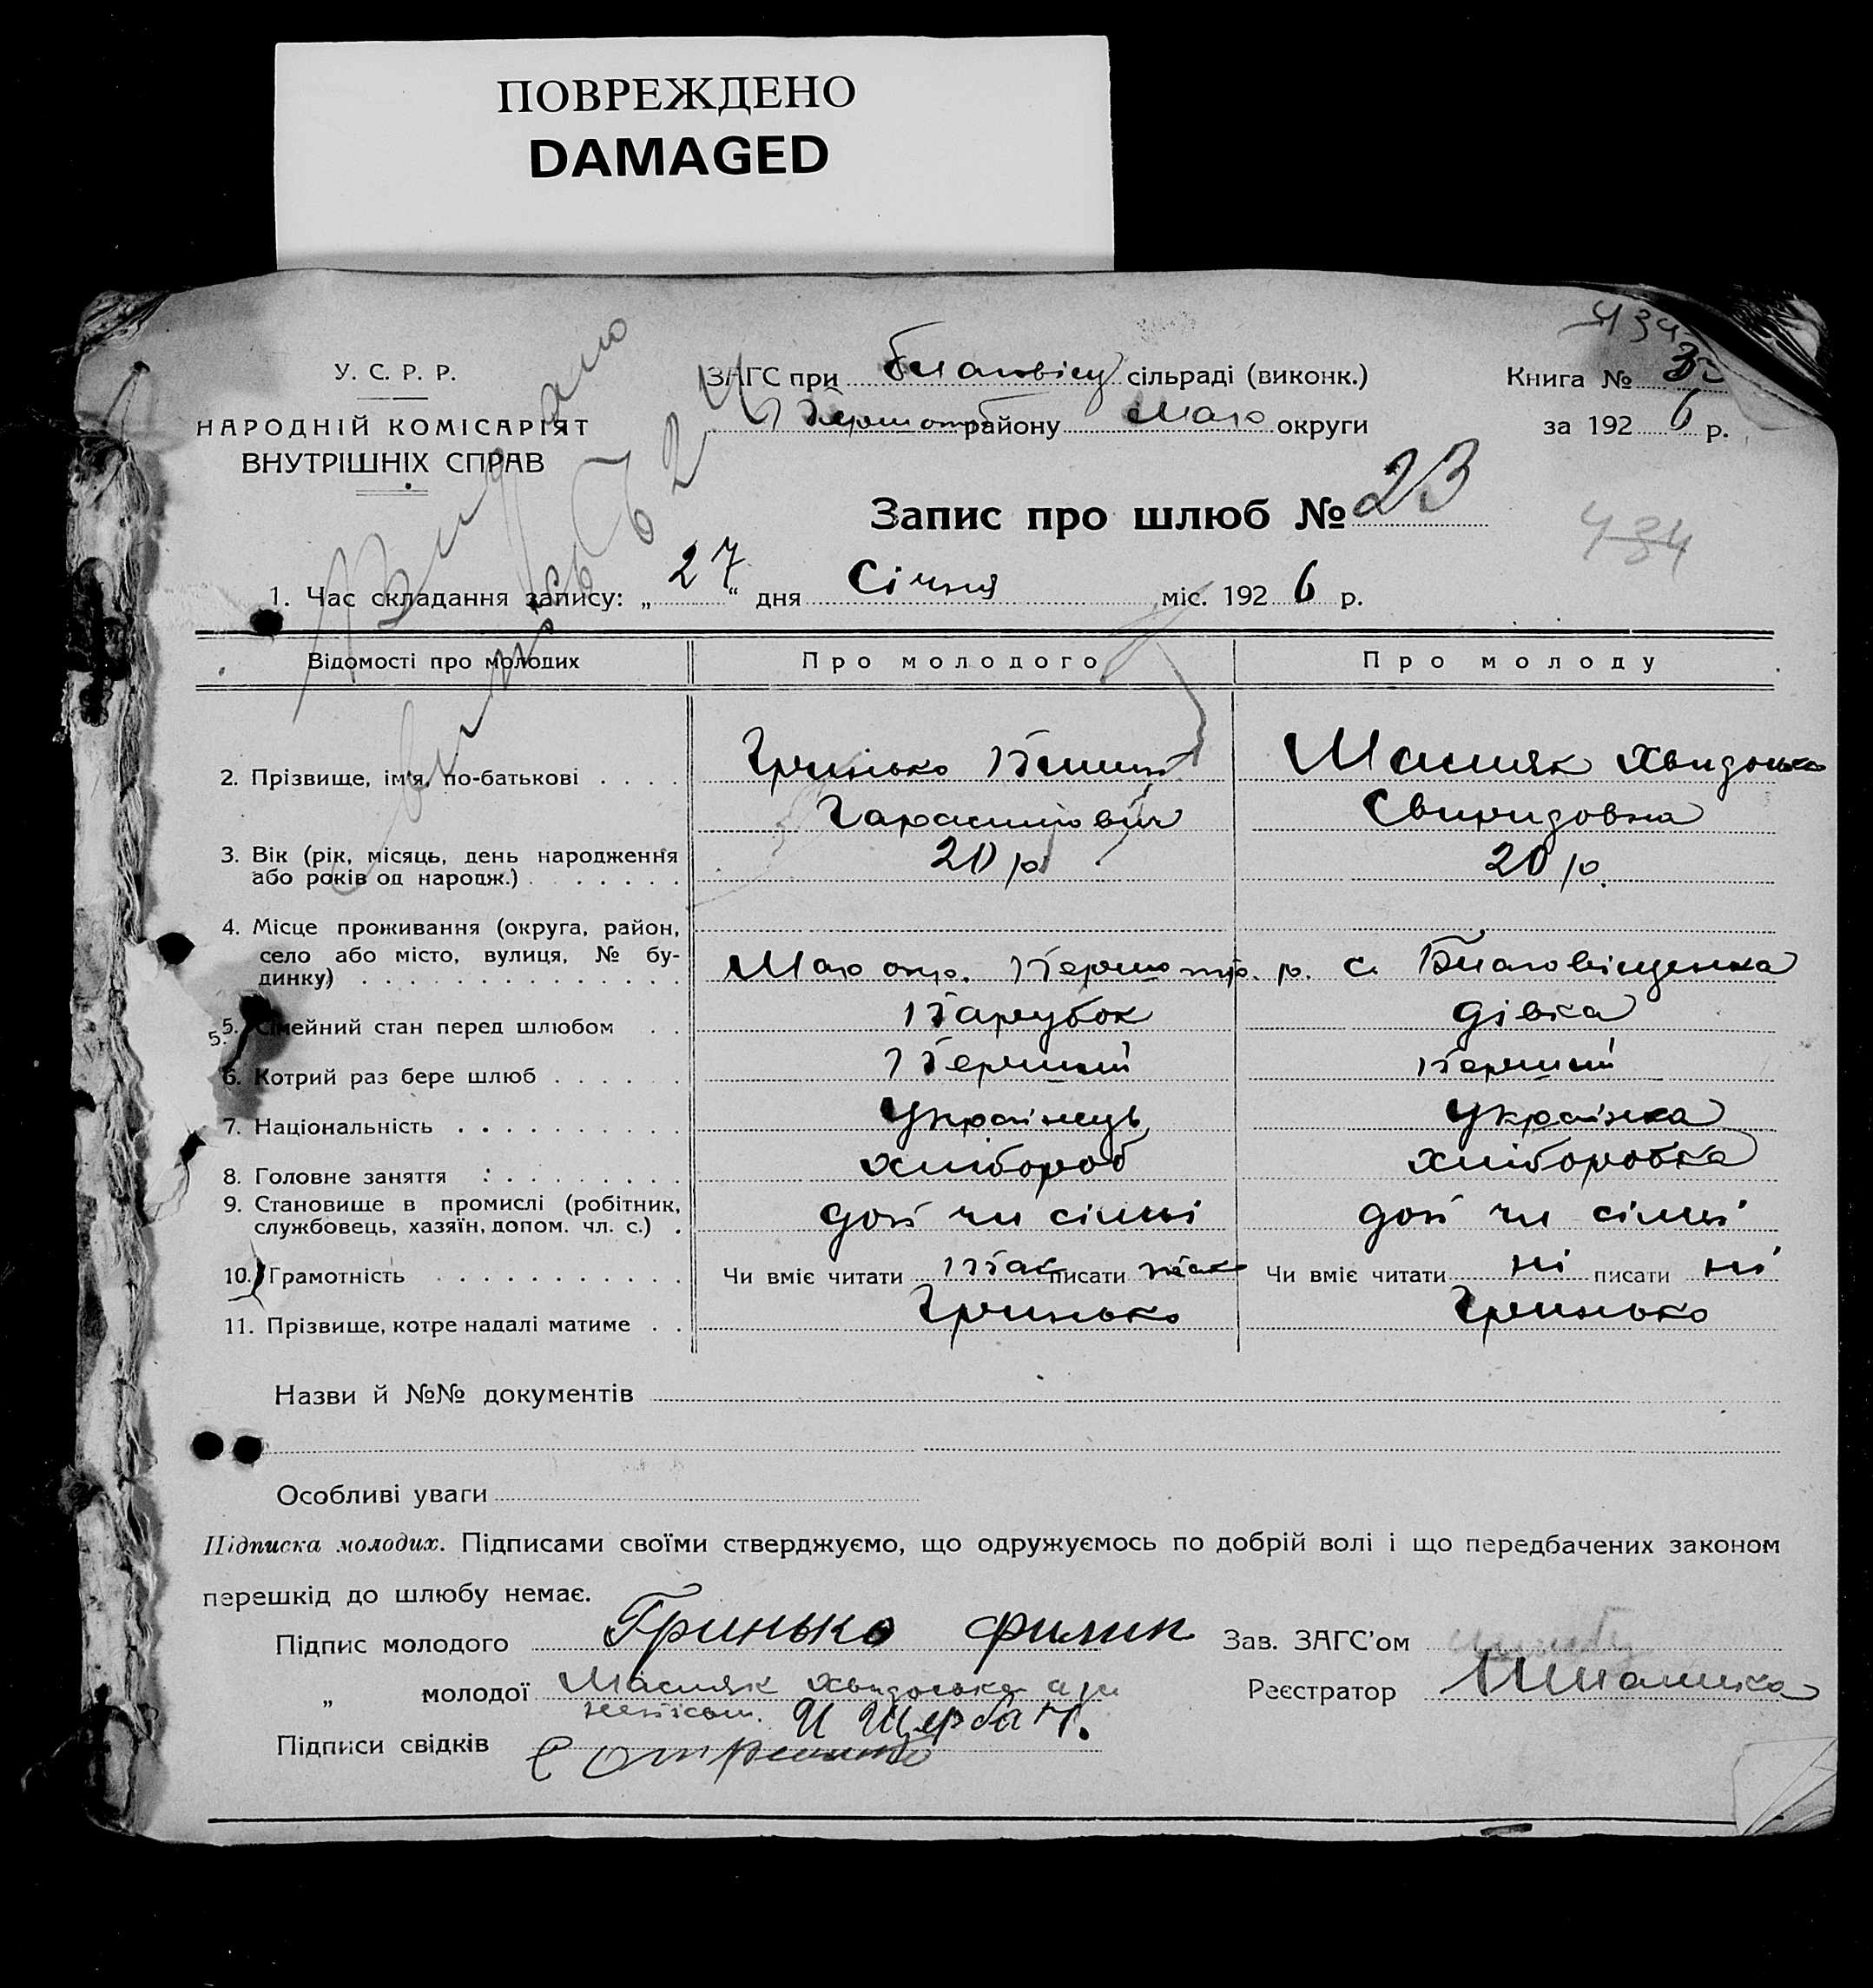 ПОВРЕЖДЕНО
DAMAGED
434
У. С. Р. Р.
НАРОДНІЙ КОМІСАРІЯТ
ВНУТРІШНІХ СПРАВ
ЗАГС при сільраді (виконк.)
району округи
Книга №
за 1926 р.
Запис про шлюб № 23
434
1. Час складання запису: „27“ дня Січня міс. 1926 р.
Відомості про молодих Про молодого Про молоду
2. Прізвище, ім'я, по-батькові . . . . Гринько Масляк
Гарасимович Свиридовна
3. Вік (рік, місяць, день народження
або років од народж.) . . . . . . . 20 р 20 р.
4. Місце проживання (округа, район,
село або місто, вулиця, № бу-
динку) . . . . . . . . . . . . . . р. с. Благовіщенка
5. Сімейний стан перед шлюбом . . Парубок дівка
6. Котрий раз бере шлюб . . . . . . Перший Перший
7. Національність . . . . . . . . . . Українець Українка
8. Головне заняття . . . . . . . . . хлібороб хліборобка
9. Становище в промислі (робітник,
службовець, хазяїн, допом. чл. с.) . доп чл сімьі доп чл сімьі
10. Грамотність . . . . . . . . . . . Чи вміє читати так писати так Чи вміє читати ні писати ні
11. Прізвище, котре надалі матиме . . Гринько Гринько
Назви й №№ документів
Особливі уваги
Підписка молодих. Підписами своїми стверджуємо, що одружуємось по добрій волі і що передбачених законом
перешкід до шлюбу немає.
Підпис молодого Гринько Филип Зав. ЗАГС'ом
„ молодої Масляк Реєстратор
И Щербак.
Підписи свідків